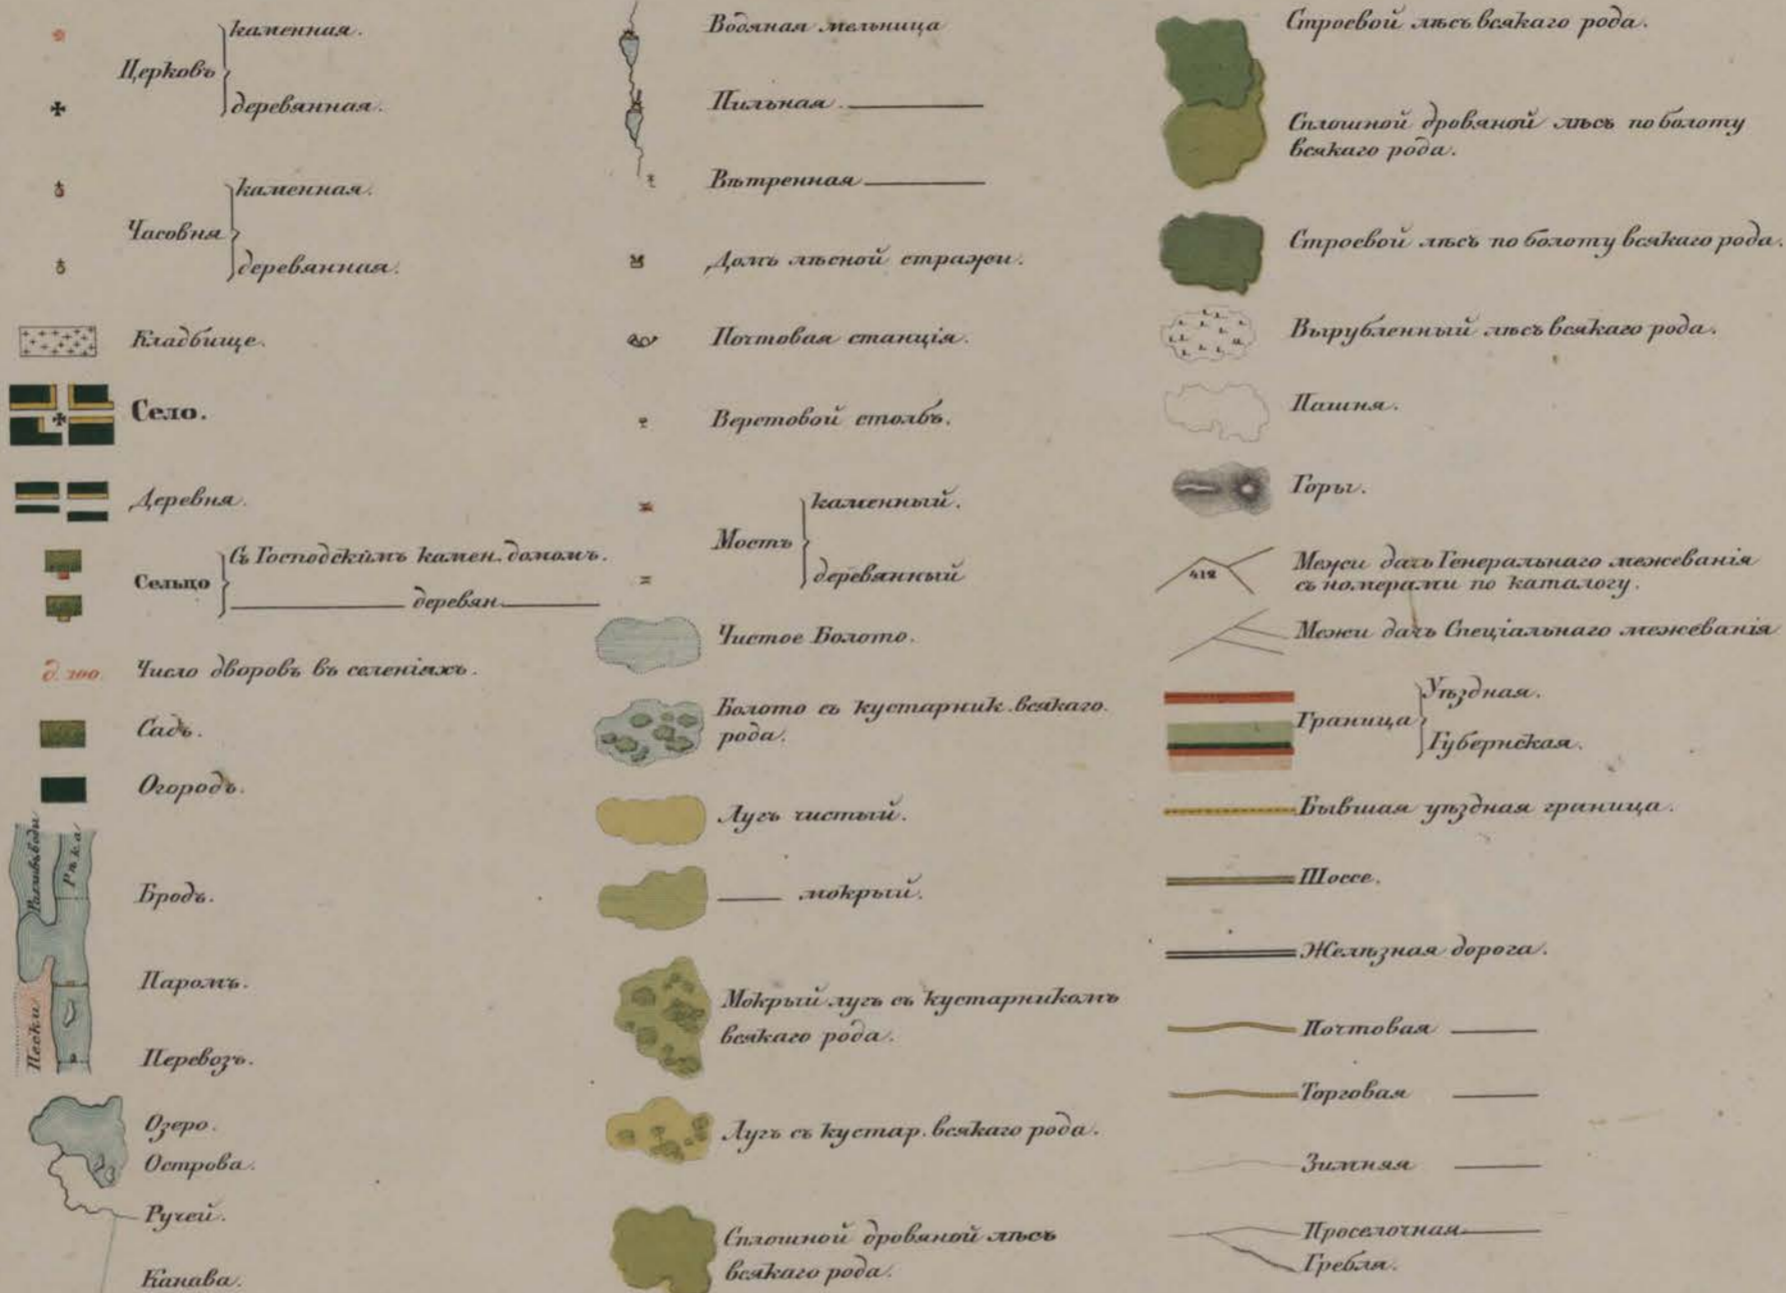 каменная.
Церковъ
деревянная.
каменная.
Часовня
деревянная.
Кладбище.
Село.
Деревня.
Съ Господскимъ камен. домомъ.
Сельцо
деревян.
д. 100. Число дворовъ въ селеніяхъ.
Садъ.
Огородъ.
Разливъ воды
Рѣка
Бродъ.
Паромъ.
Пески
Перевозъ.
Озеро.
Острова.
Ручей.
Канава.
Водяная мельница
Пильная.
Вѣтренная
Домъ лѣсной стражи.
Почтовая станція.
Верстовой столбъ.
каменный.
Мостъ
деревянный
Чистое Болото.
Болото съ кустарник. всякаго.
рода.
Лугъ чистый.
мокрый.
Мокрый лугъ съ кустарникомъ
всякаго рода.
Лугъ съ кустар. всякаго рода.
Сплошной дровяной лѣсъ
всякаго рода.
Строевой лѣсъ всякаго рода.
Сплошной дровяной лѣсъ по болоту
всякаго рода.
Строевой лѣсъ по болоту всякаго рода.
Вырубленный лѣсъ всякаго рода.
Пашня.
Горы.
412
Межи дачъ Генеральнаго межеванія
съ номерами по каталогу.
Межи дачъ Спеціальнаго межеванія
Уѣздная.
Граница
Губернская.
Бывшая уѣздная граница.
Шоссе.
Желѣзная дорога.
Почтовая
Торговая
Зимняя
Проселочная
Гребля.